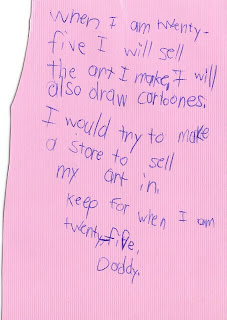 when I am twenty-
five I will sell
the art I make, I will
also draw cartoones.
I would try to make
a store to sell
my art in.
keep for when I am
twenty-five,
Daddy.